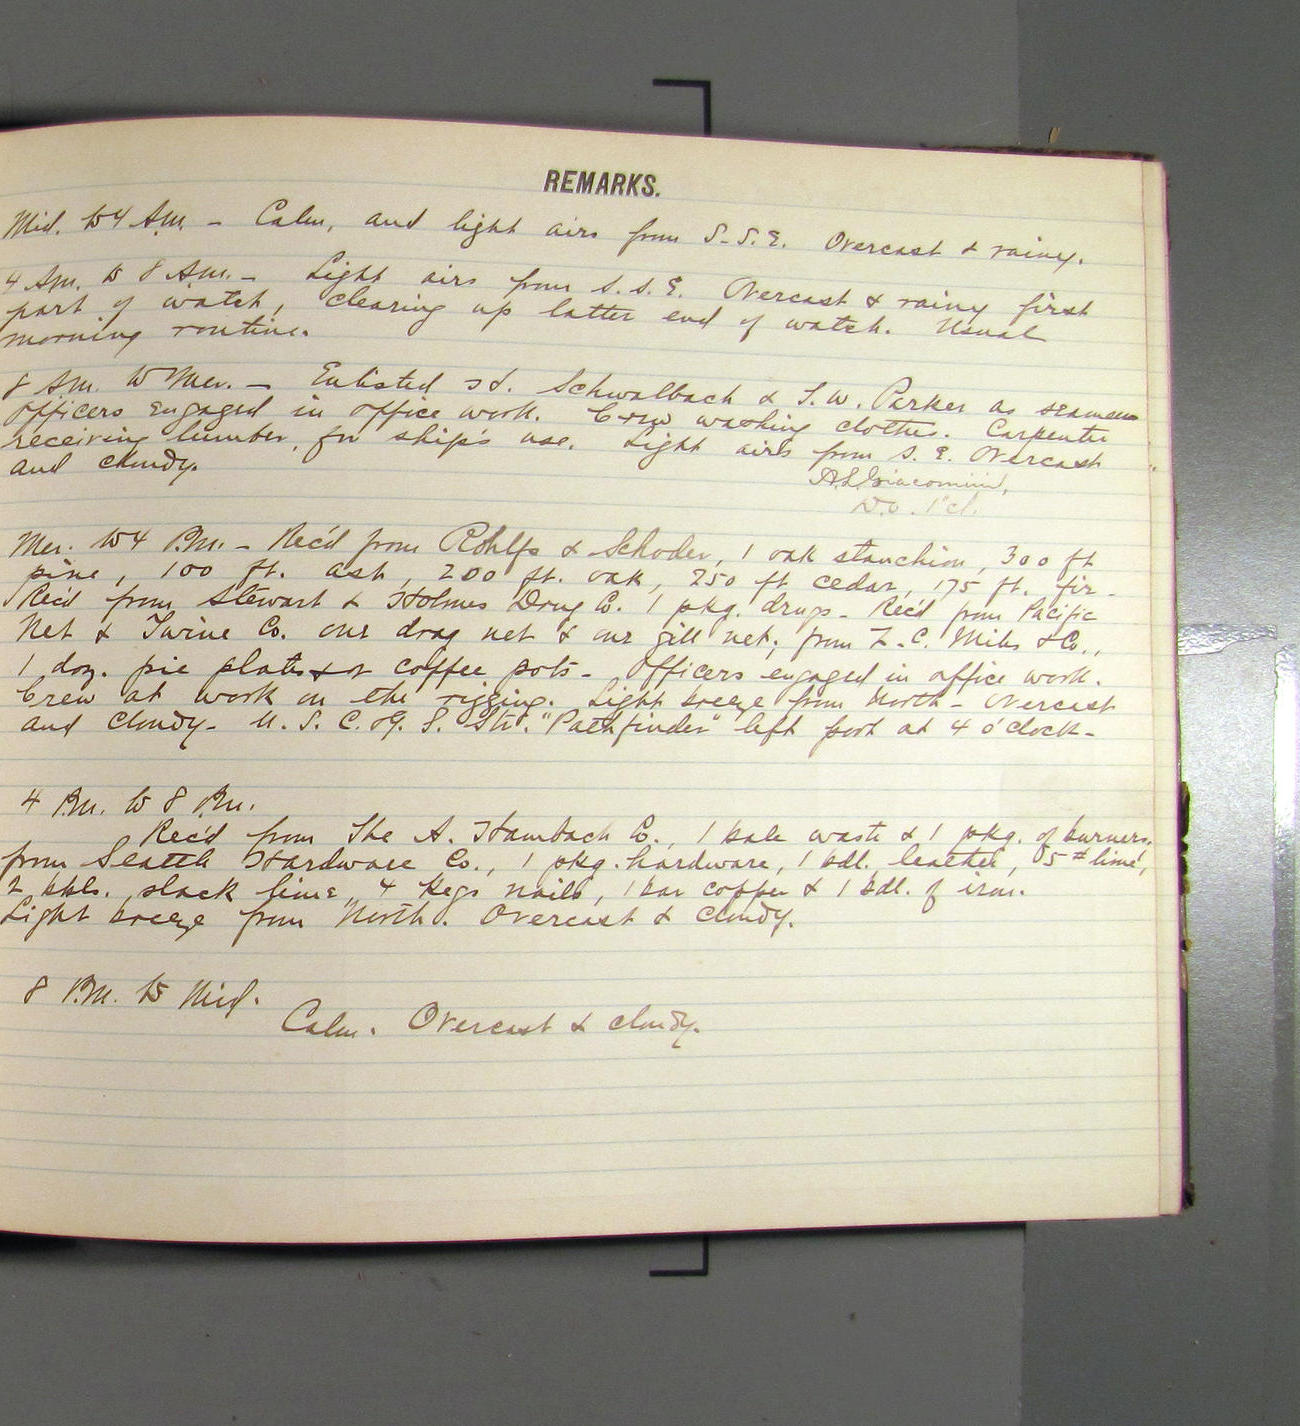 REMARKS.
Mid. to 4 A.M. - Calm, and light airs from S.S.E. Overcast & rainy.
4 A.M. to 8 A.M. - Light airs from S.S.E. Overcast & rainy first
part of watch, clearing up latter end of watch. Usual
morning routine.
8 A.M. to Mer. - Enlisted Schwalbach & Parker as seamen
Officers engaged in office work. Crew washing clothes. Carpenter
receiving lumber, for ship's use. Light airs from S.E. Overcast
and cloudy.
A.L. Giacomini,
W.O. 1" cl.
Mer. to 4 P.M. - Rec'd from Rohlfs & Schoder, 1 oak stanchion, 300 ft
pine, 100 ft. ash, 200 ft. oak, 250 ft cedar, 175 ft. fir -
Rec'd from Stewart & Holmes Drug Co. 1 pkg. drugs - Rec'd from Pacific
Net & Twine Co. one drag net & one gill net; from Z.C. Miles & Co.,
1 doz. pie plates coffee pots - Officers engaged in office work.
Crew at work on the rigging. Light breeze from North - Overcast
and cloudy - U.S.C. & G.S. Str. "Pathfinder" left port at 4 o'clock -
4 P.M. to 8 P.M.
Rec'd from The A. Hambach Co., 1 bale waste & 1 pkg. of burners,
from Seattle Hardware Co., 1 pkg. hardware, 1 bdl. leather, 5# lime,
2 bbls. slack lime, 4 kegs nails, 1 bar copper & 1 bdl. of iron.
Light breeze from North. Overcast & cloudy.
8 P.M. to Mid.
Calm. Overcast & cloudy.